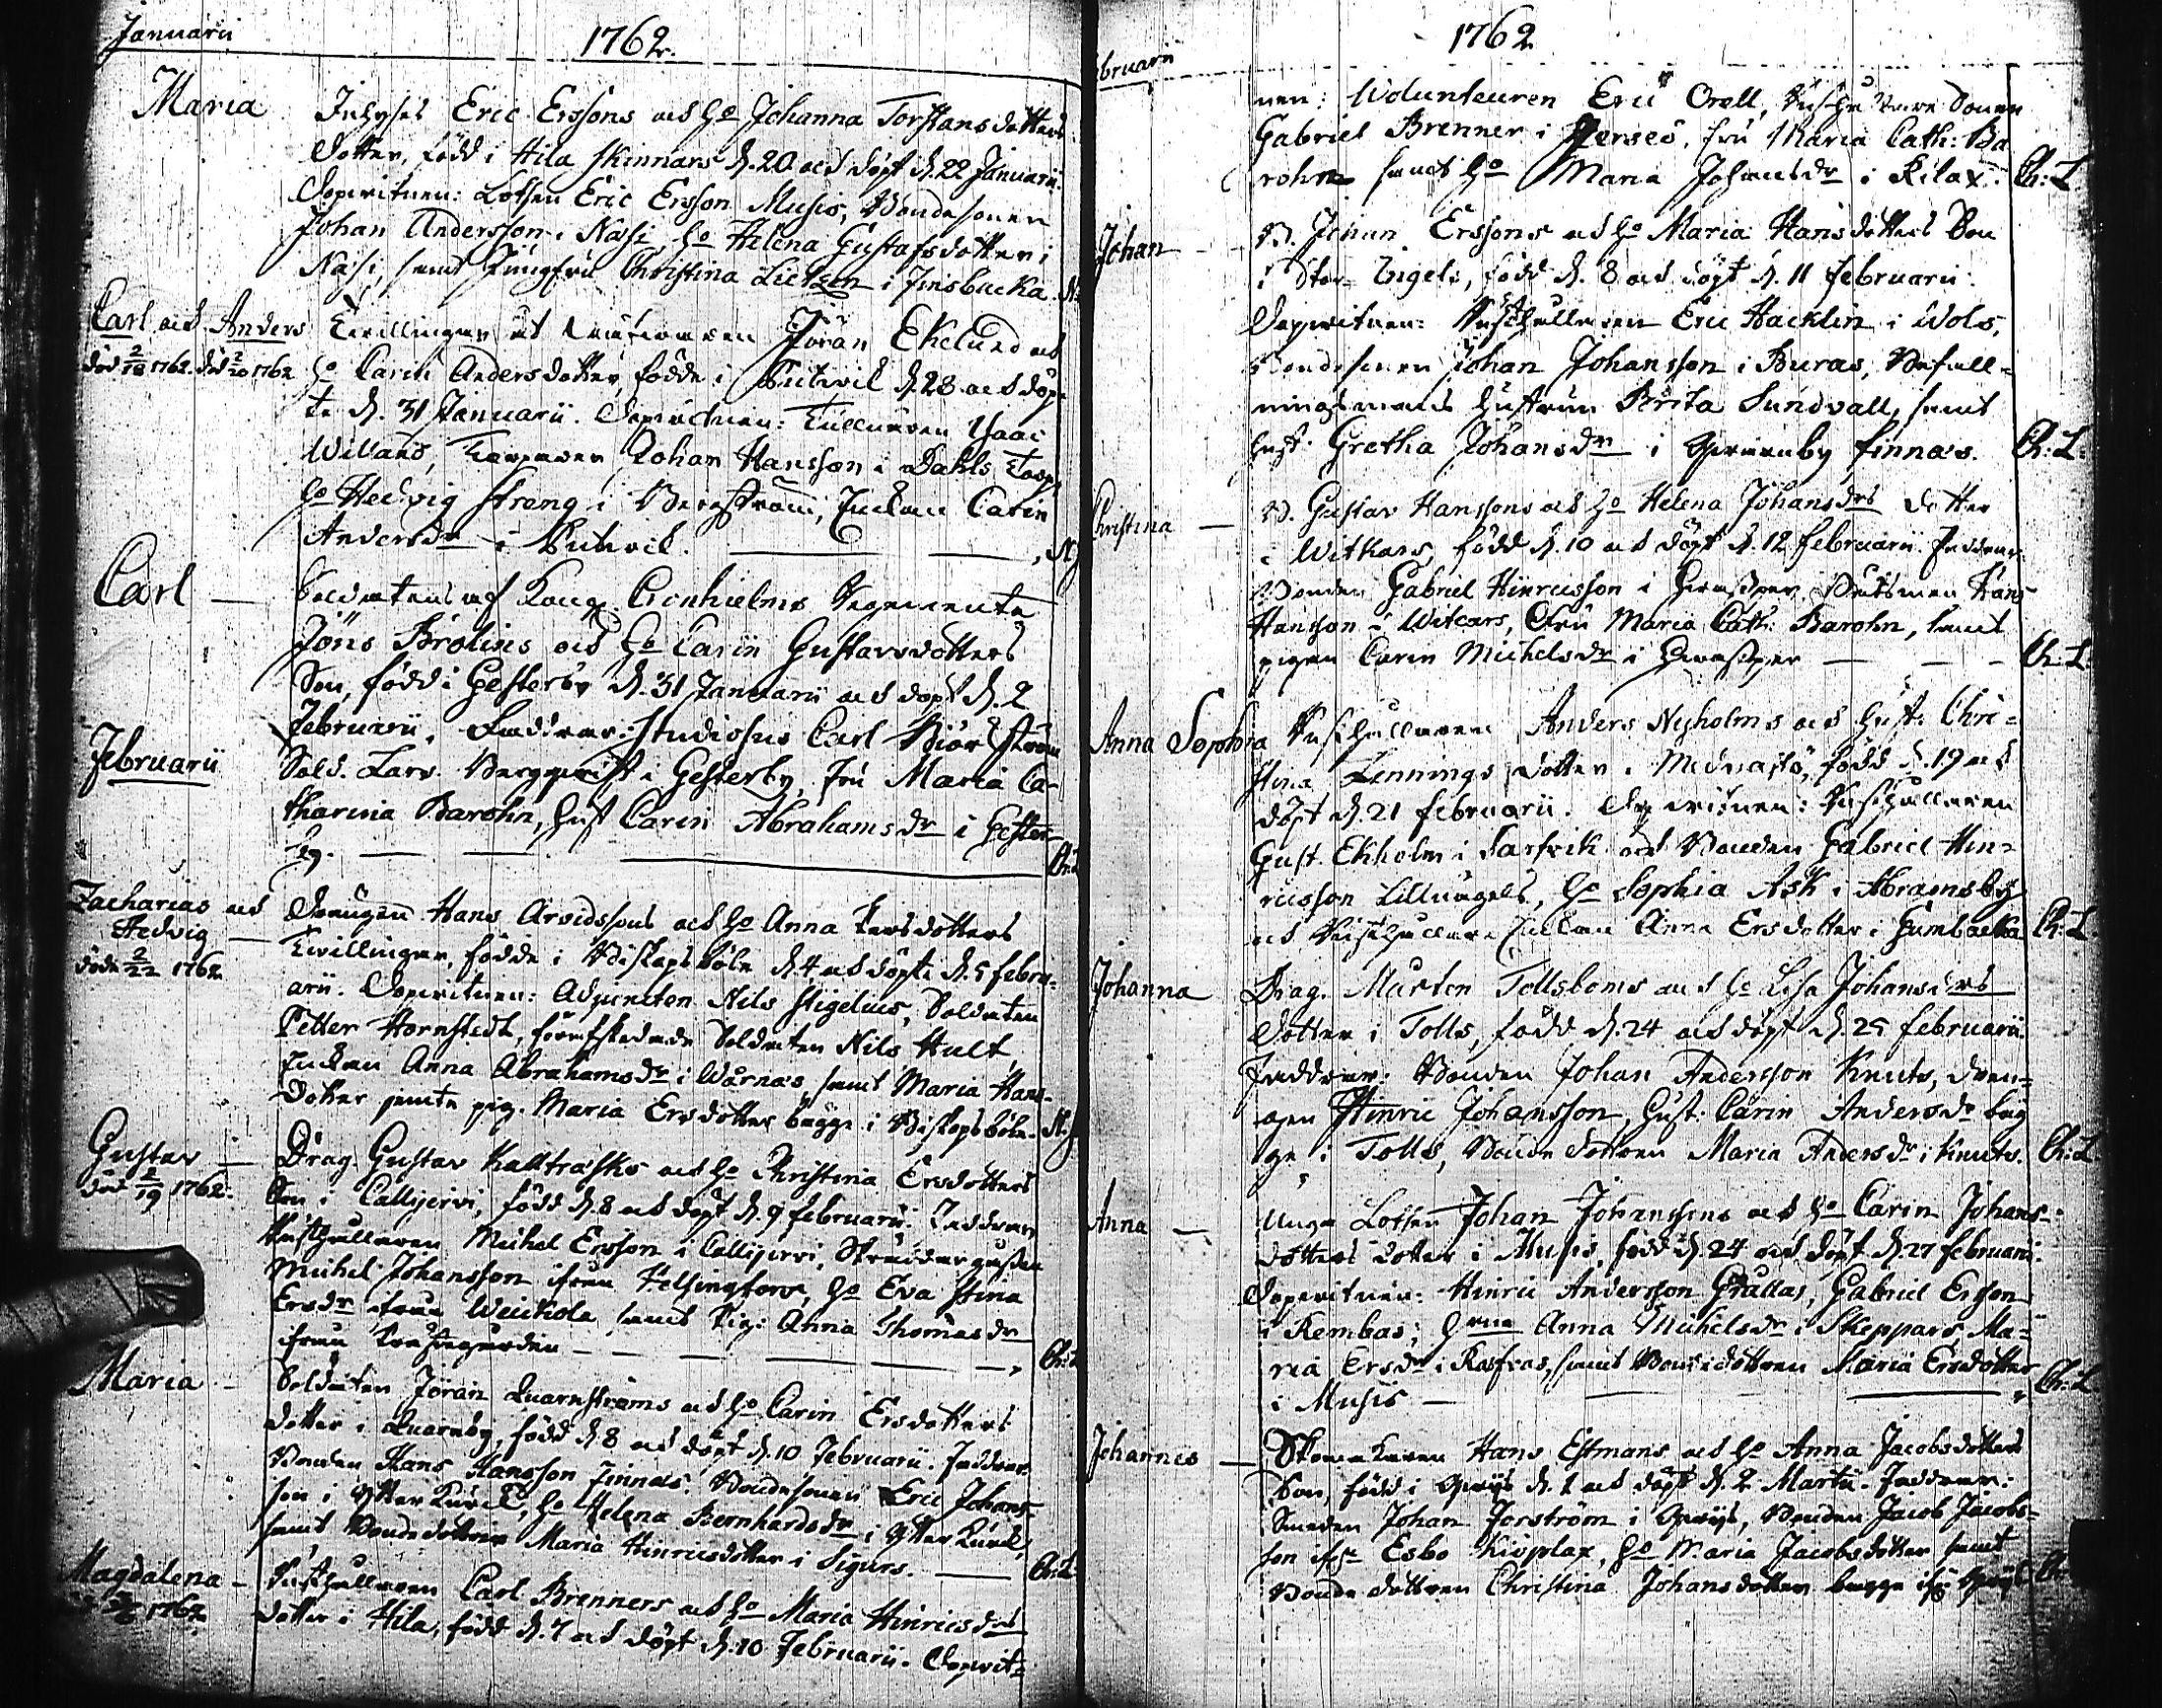 Januarii
1762.
Maria
Inhyses Eric Erssons och H:o Johanna Torstansdotters
dotter, född i Hila skinnars d. 20 och döpt d. 22 Januarii.
Dopvitnen: Lotsen Eric Ersson Musis, Bondesonen
Johan Andersson i Näsi, H:o Helena Gustafsdotter i
Näsi, samt Jungfru Christina Lietzen i Finsbacka. N:
Carl och Anders
död 2/18 1762 död 2/20 1762
Tvillingar af Joran Ekelund och
H:o Carin Andersdotter, födde i d. 28 och döp-
te d. 31 Januarii. Dopvitnen: Isaac
Willand, Johan Hansson i Dahls Torp,
H:o Hedvig Streng i Bergstram, Enkan Carin
Andersd:r i
Carl
Soldatens af Kongl. Regemente
Jöns Brolins och H:o Carin Gustavsdotters
Son, född i Gesterby d. 31 Januarii och döpt d. 2
Februarii. Faddrar: Studiosus Carl Biörkström
Februarii
Sold. Lars Bergqvist i Gesterby, Fru Maria Ca-
tharina Barohn, Hust. Carin Abrahamsd:r i Gester-
by. Ch: L
Zacharias och
Hedvig
döde 2/22 1762
Drängen Hans Arvidssons och H:o Anna Larsdotters
Tvillingar, födde i Biskopsböle d. 4 och döpte d. 5 Febru-
arii. Dopvitnen: Adjuncten Nils Stigelius, Soldaten
Petter Hornstedt, förafskedade Soldaten Nils Hult,
Enkan Anna Abrahamsd:r i Wårnäs, samt Maria Hans-
dotter jemte pig. Maria Ersdotter bägge i Biskopsböle.
Gustav
död 2/19 1762.
Drag. Gustav Kalltrasks och H:o Christina Ersdotters
Son i Callijervi, född d. 8 och döpt d. 9 Februarii. Faddrar
Rusthållaren Michel Ersson i Callijervi, Skräddargesällen
Michel Johansson ifrån Helsingfors, H:o Eva Stina
Ersd:r ifrån Weickola samt Pig: Anna Thomasd:r
ifrån Ch: L
Maria
Soldaten Jöran Quarnströms och H:o Carin Ersdotters
dotter i Quarnby, född d. 8 och döpt d. 10 Februarii. Faddrar:
Bonden Hans Hansson Finnas, Bondesonen Eric Johans-
son i Ytter Kurck, H:o Helena Bernhardsd:r i Ytter Kurck,
samt Bondedottren Maria Hinricsdotter i Sigurs. Ch: L
Magdalena
1762
Rusthållaren Carl Brenners och H:o Maria Hinricsd:rs
dotter i Hila, född d. 7 och döpt d. 10 Februarii. Dopvit-
1762
bruarii
nen: Volunteuren Eric Orell, Rusthållare Sonen
Gabriel Brenner i Perseö, Fru Maria Cath: Ba
rohn samt H:o Maria Johansd:r i Kilax. Ch: L
Johan
B. Johan Erssons och H:o Maria Hansdotters Son
i Stor-Engels, född d. 8 och döpt d. 11 Februarii.
Dopvitnen: Rusthållaren Eric Hacklin i Wols,
Bondesonen Johan Johansson i Buras, Befall-
ningsmans Hustrun Brita Sundvall, samt
Hust. Gretha Johansd:r i Finnas. Ch: L:
Christina
B. Gustav Hanssons och H:o Helena Johansd:rs dotter
i Witkars, född d. 10 och döpt d. 12 Februarii. Faddrar:
Bonden Gabriel Hinricsson i Båtsman Hans
Hansson i Witcars, Fru Maria Cath: Barohn, samt
pigan Carin Michelsd:r i Ch: L:
Anna Sophia
Rusthållaren Anders Nyholms och Hust: Chri-
stina Lennings dotter i Medvastö, född d. 19 och
döpt d. 21 Februarii. Dopvitnen: Rusthållaren
Gust. Ekholm i Sarfvik och Bonden Gabriel Hin-
ricsson Lillängels, H:o Sophia Ask i Abramsby
och Rusthållare Enkan Anna Ersdotter i Gumbacka Ch: L
Johanna
Drag. Mårten Tollsboms och H:o Lisa Johansd:rs
dotter i Tolls, född d. 24 och döpt d. 25 Februarii.
Faddrar: Bonden Johan Andersson Knuts, dren-
gen Hinric Johansson, Hust. Carin Andersd:r bäg
ge i Tolls, Bonde dottren Maria Andersd:r i Knuts. Ch: L
Anna
Unga Lotsen Johan Johanssons och H:o Carin Johans-
dotters dotter i Musis, född d. 24 och döpt d. 27 Februarii.
Dopvitnen: Hinric Andersson Grällas, Gabriel Ersson
i Rembas, Anna Michelsd:r i Skeppars, Ma-
ria Ersd:r i samt Bondedottren Maria Ersdotter
i Musis Ch: L
Johannes
Skomakaren Hans Estmans och H:o Anna Jacobsdotters
Son, född i d. 1 och döpt d. 2 Martii. Faddrar:
Smeden Johan Forström i Bonden Jacob Jacobs-
son ifr: Esbo Kivplax, H:o Maria Jacobsdotter samt
Bonde dottren Christina Johansdotter bägge